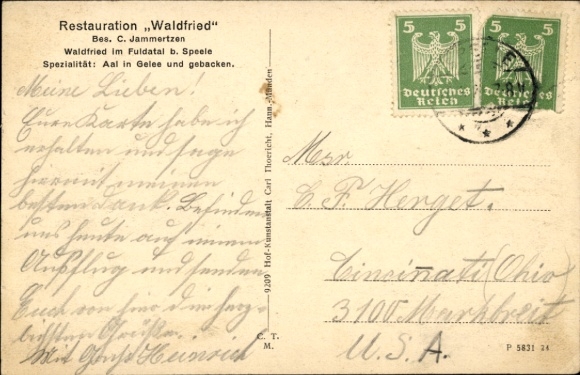 Restauration „Waldfried"
Bes. C. Jammertzen
Waldfried im Fuldatal b. Speele
Spezialität: Aal in Gelee und gebacken.
Meine Lieben!
Eure Karte habe ich
erhalten und sage
hiermit meinen
besten Dank. Befinden
uns heute auf einem
Ausflug und senden
Euch von hier die herz-
lichsten Grüße.
Mit Gruß Heinrich
9209 Hof-Kunstanstalt Carl Thoericht, Hann.-Münden
C. T.
M.
5 5
Deutsches
Reich
5 5
Deutsches
Reich
Msr
C. F. Herget.
Cincinati (Ohio)
3100 Markbreit
U. S. A.
P 5831 24